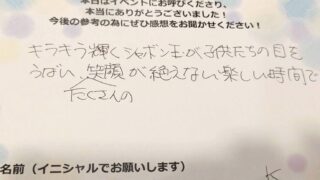 本日はイベントにお呼びくださり、
本当にありがとうございました！
今後の参考の為にぜひ感想をお聞かせください！
キラキラ輝くシャボン玉が子供たちの目を
うばい、笑顔が絶えない楽しい時間で
たくさんの
名前（イニシャルでお願いします）
K